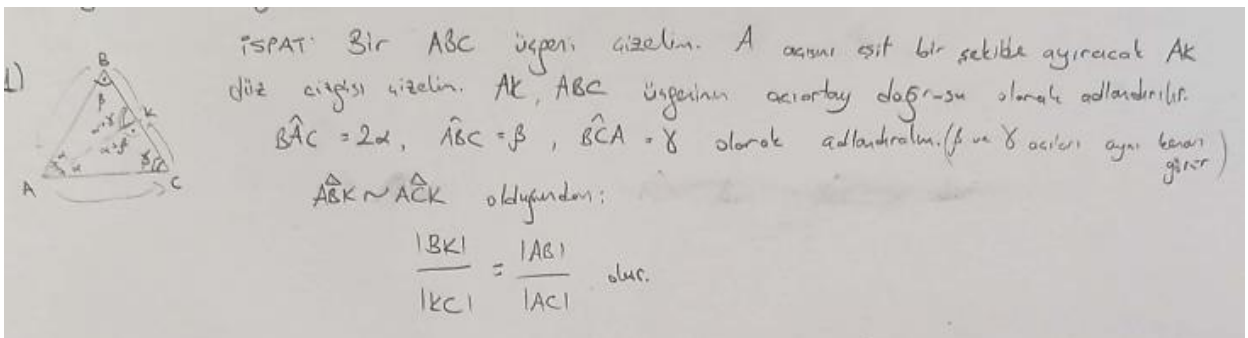 1)
İSPAT: Bir ABC üçgeni çizelim. A açısını eşit bir şekilde ayıracak AK
düz çizgisi çizelim. AK, ABC üçgeninin açıortay doğrusu olarak adlandırılır.
BÂC = 2α, AB̂C = β, BĈA = γ olarak adlandıralım. (β ve γ açıları aynı kenarı
görür)
AB̂K ~ AĈK olduğundan:
|BK| / |KC| = |AB| / |AC| olur.
B
β
α+γ
K
α+β
α
α
γ
β
A
C